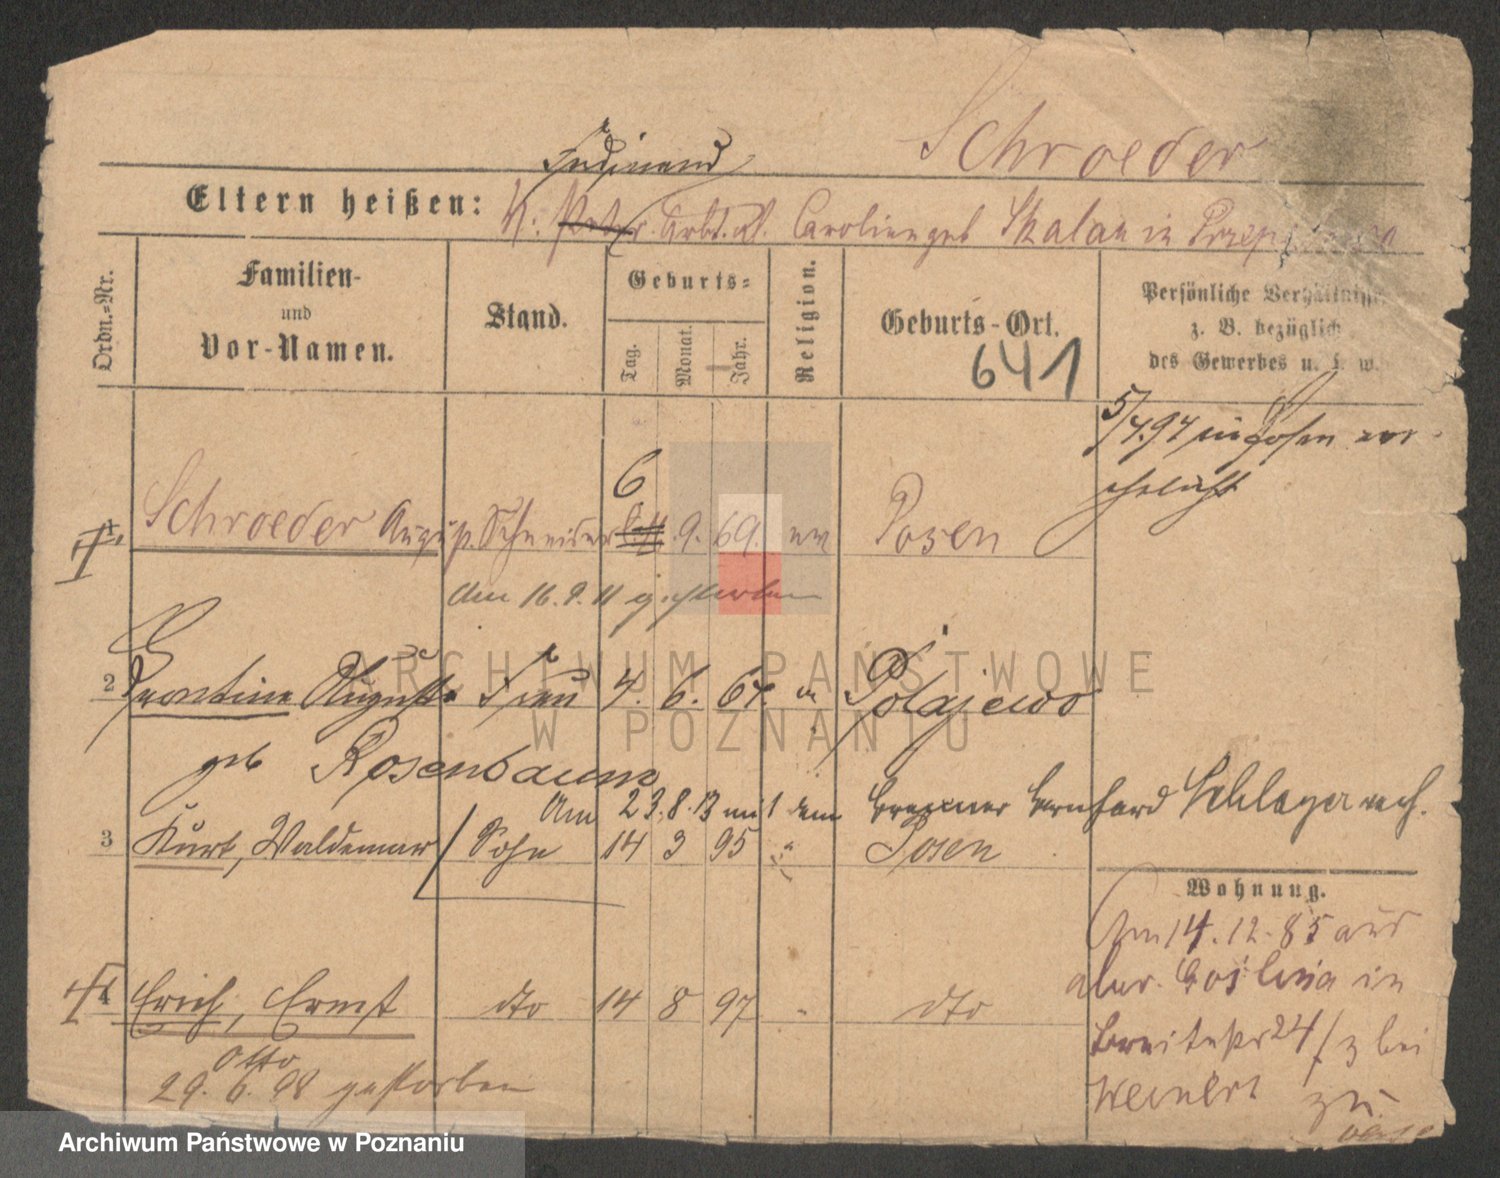 Schroeder
Ferdinand
Eltern heißen: V: Peter Arbt. u. Caroline geb Skalan in
Ordn.-Nr. Familien- und Vor-Namen. Stand. Geburts= Tag. Monat. Jahr. Religion. Geburts-Ort. Persönliche Verhältnisse, z. B. bezüglich des Gewerbes u. s. w.
641
5/7.97 in Posen ver-
ehelicht
6
Schroeder August Schneider 9. 69. ev Posen
Am 16.9.11 gestorben
2 Leontine Auguste Frau 4. 6. 67. " Polajewo
geb Rosenbaum
Am 23.8.13 mit dem Bernhard Schlager
3 Kurt, Waldemar Sohn 14 3 95 " Posen
Wohnung.
Am 14.12.85 aus
Goslina in
4 Erich, Ernst dto 14 8 97 " dto
Otto
Breitestr 24/3 bei
29. 6. 98 gestorben
Weinert zu
ARCHIWUM PAŃSTWOWE
W POZNANIU
Archiwum Państwowe w Poznaniu